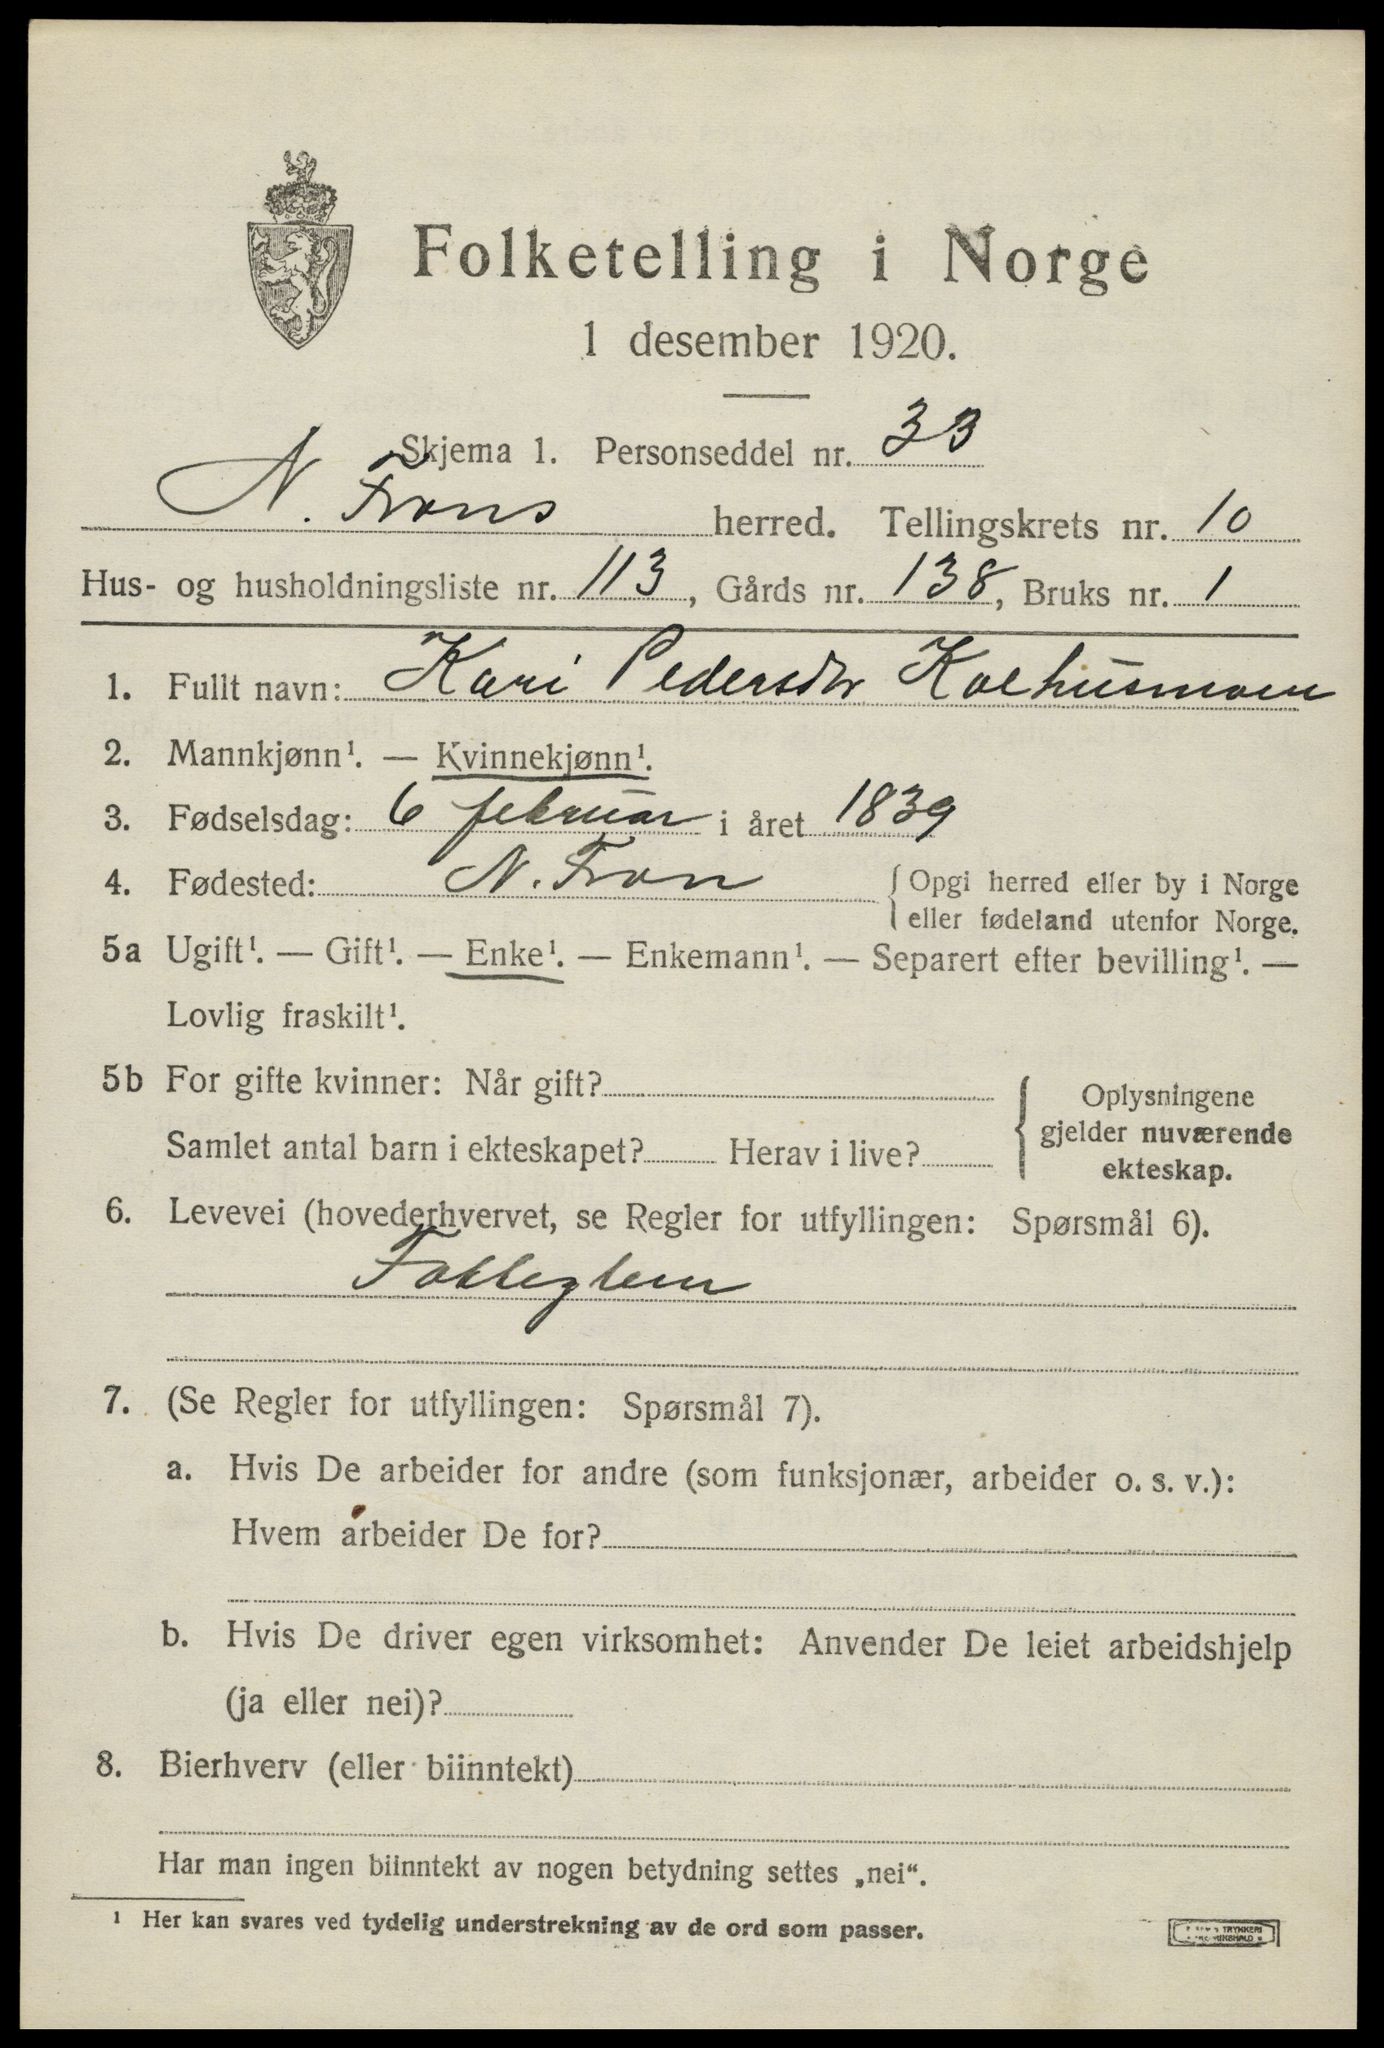 Folketelling i Norge
1 desember 1920.
Skjema 1. Personseddel nr. 33
N. Frons herred. Tellingskrets nr. 10
Hus- og husholdningsliste nr. 113, Gårds nr. 138, Bruks nr. 1
1. Fullt navn: Kari Pedersdtr Kolhusmoen
2. Mannkjønn¹. — Kvinnekjønn¹.
3. Fødselsdag: 6 februar i året 1839
4. Fødested: N. Fron {Opgi herred eller by i Norge
eller fødeland utenfor Norge.
5a Ugift¹. — Gift¹. — Enke¹. — Enkemann¹. — Separert efter bevilling¹. —
Lovlig fraskilt¹.
5b For gifte kvinner: Når gift?
Samlet antal barn i ekteskapet? Herav i live?
Oplysningene
gjelder nuværende
ekteskap.
6. Levevei (hovederhvervet, se Regler for utfyllingen: Spørsmål 6).
7. (Se Regler for utfyllingen: Spørsmål 7).
a. Hvis De arbeider for andre (som funksjonær, arbeider o. s. v.):
Hvem arbeider De for?
b. Hvis De driver egen virksomhet: Anvender De leiet arbeidshjelp
(ja eller nei)?
8. Bierhverv (eller biinntekt)
Har man ingen biinntekt av nogen betydning settes „nei“.
¹ Her kan svares ved tydelig understrekning av de ord som passer.